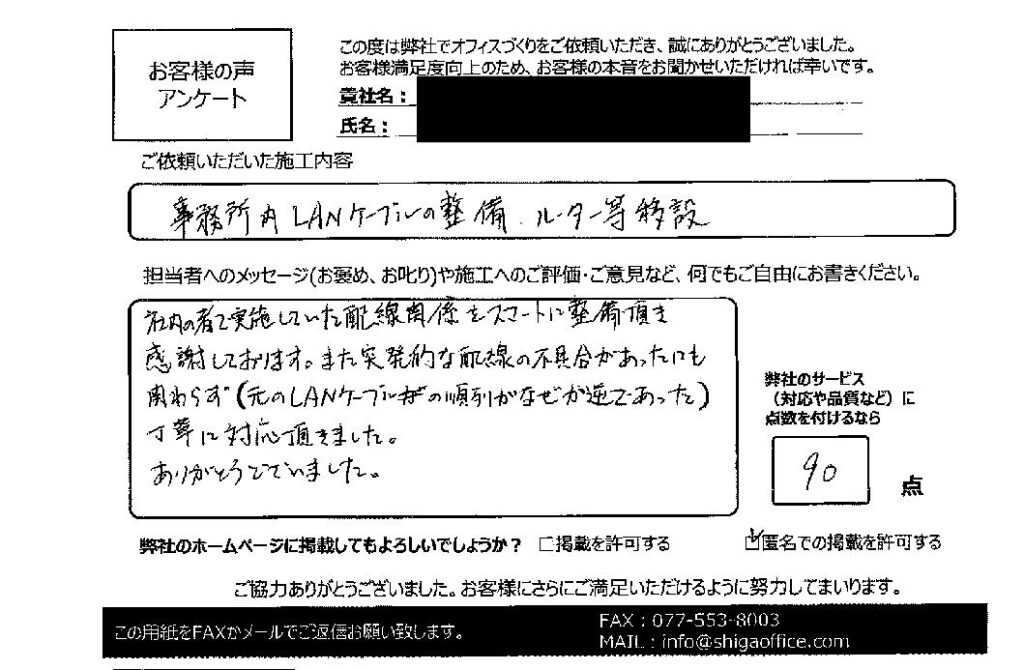 お客様の声
アンケート
この度は弊社でオフィスづくりをご依頼いただき、誠にありがとうございました。
お客様満足度向上のため、お客様の本音をお聞かせいただければ幸いです。
貴社名：
氏名：
ご依頼いただいた施工内容
事務所内LANケーブルの整備、ルーター等移設
担当者へのメッセージ(お褒め、お叱り)や施工へのご評価・ご意見など、何でもご自由にお書きください。
社内の者で実施していた配線関係をスマートに整備頂き
感謝しております。また突発的な配線の不具合があったにも
関わらず(元のLANケーブルの順列がなぜか逆であった)
丁寧に対応頂きました。
ありがとうございました。
弊社のサービス
（対応や品質など）に
点数を付けるなら
90 点
弊社のホームページに掲載してもよろしいでしょうか？ □掲載を許可する ☑匿名での掲載を許可する
ご協力ありがとうございました。お客様にさらにご満足いただけるように努力してまいります。
この用紙をFAXかメールでご返信お願い致します。
FAX：077-553-8003
MAIL：info@shigaoffice.com